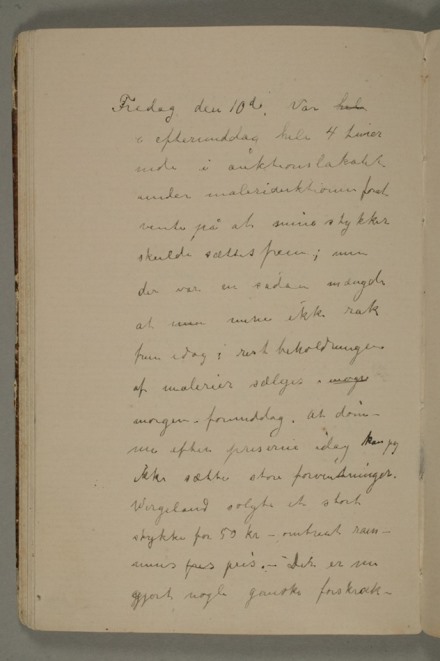 Fredag den 10de. Var hele
i eftermiddag hele 4 timer
nede i auktionslokalet
under maleriauktionen for at
vente på at mine stykker
skulde sættes frem; men
der var en sådan mængde
at man mine ikke rak
frem idag; restbeholdningen
af malerier sælges i morge
morgen-formiddag. At døm-
me efter priserne idag kan jeg
ikke sætte store forventninger.
Wergeland solgte et stort
stykke for 50 kr - omtrent ram-
mens pris. - Det er nu
gjort nogle ganske forskræk-